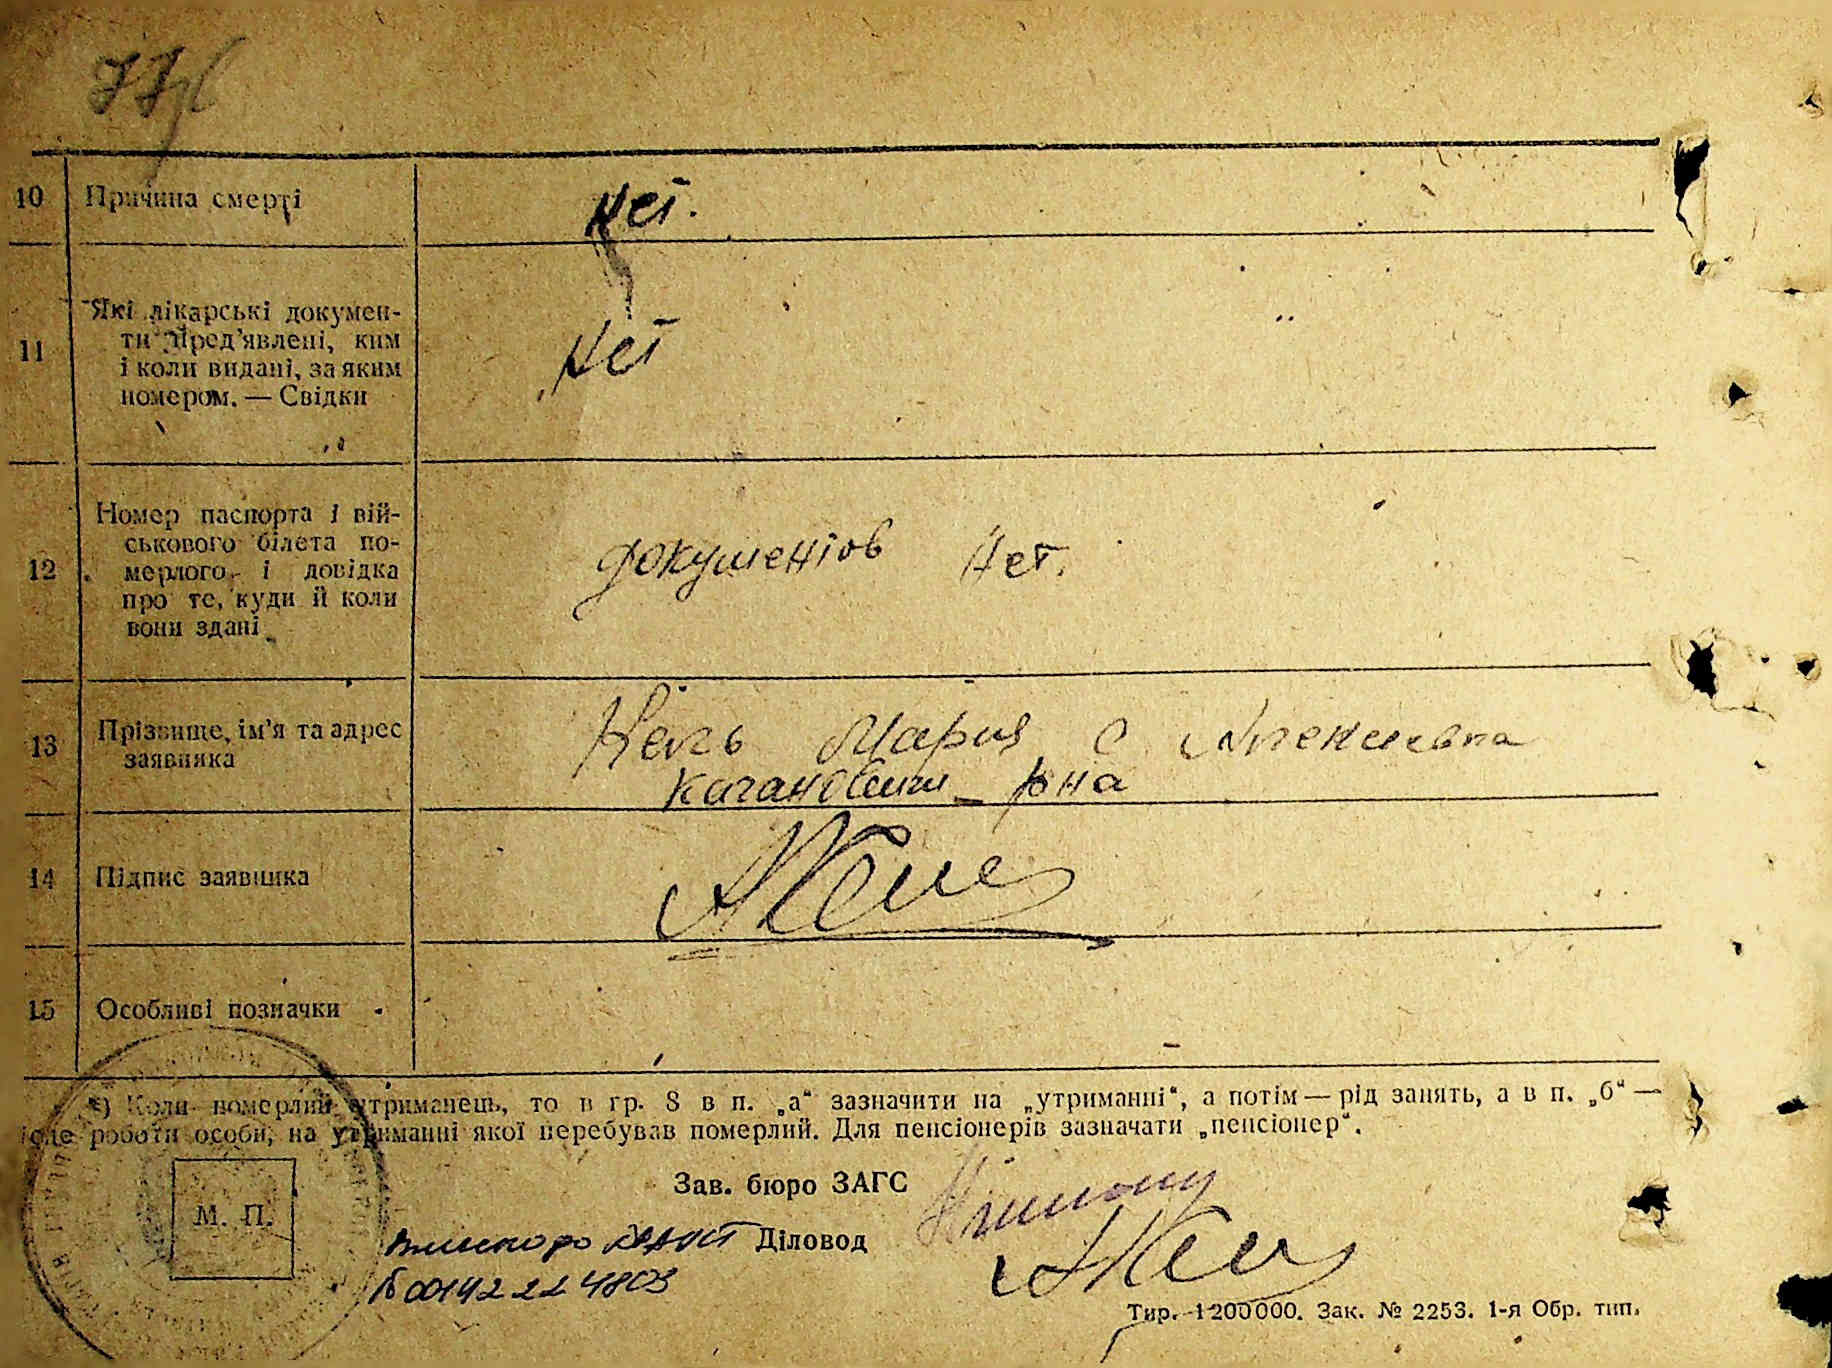 10 Причина смерті нет.
11 Які лікарські докумен-
ти пред'явлені, ким
і коли видані, за яким
номером. — Свідки
нет
12 Номер паспорта і вій-
ськового білета по-
мерлого і довідка
про те, куди й коли
вони здані
документов нет.
13 Прізвище, ім'я та адрес
заявника
Мария Алексеевна
14 Підпис заявника
15 Особливі позначки
*) Коли померлий утриманець, то в гр. 8 в п. „а“ зазначити на „утриманні“, а потім — рід занять, а в п. „б“ —
роботи особи, на утриманні якої перебував померлий. Для пенсіонерів зазначати „пенсіонер“.
Зав. бюро ЗАГС
М. П.
Діловод
00142224803
Тир. 1200000. Зак. № 2253. 1-я Обр. тип.